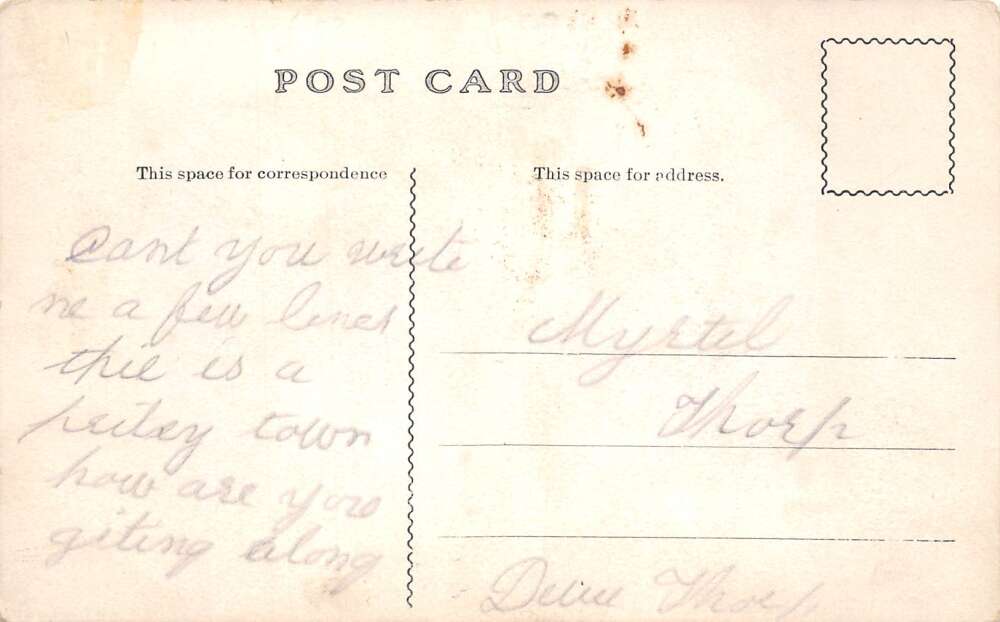 POST CARD
This space for correspondence
This space for address.
Cant you write
me a few lines
this is a
town
how are you
giting along
Myrtel
Thorp
Thorp